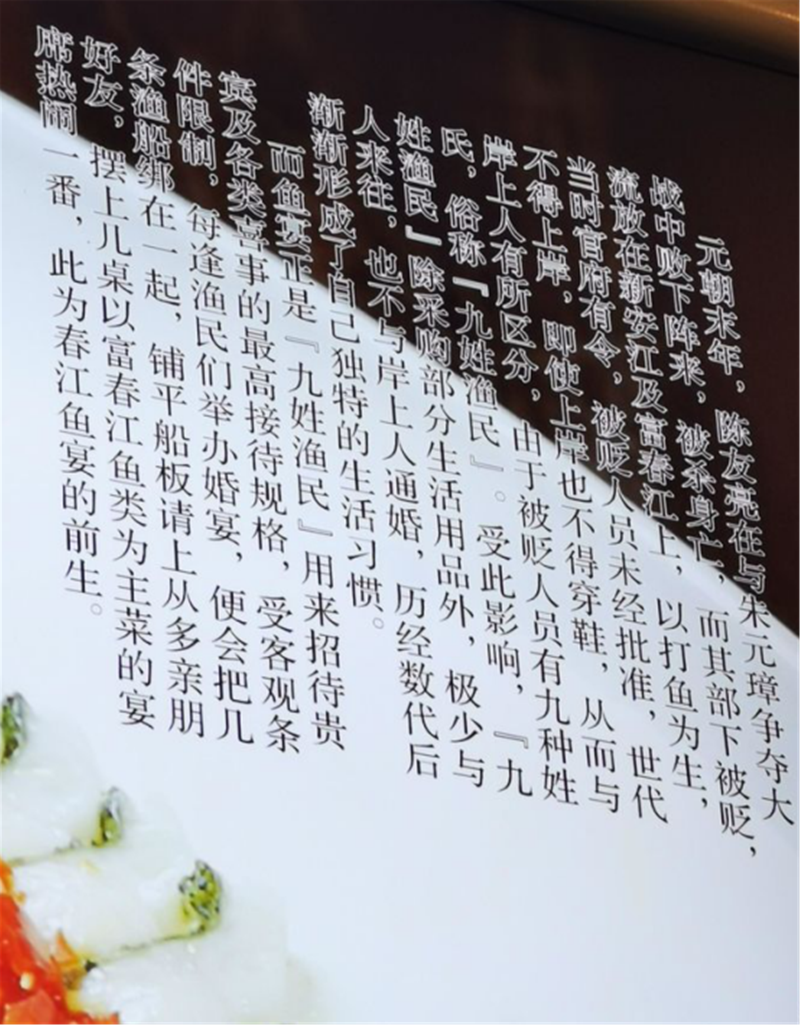 元朝末年，陈友亮在与朱元璋争夺大
战中败下阵来，被杀身亡，而其部下被贬，
流放在新安江及富春江上，以打鱼为生，
当时官府有令，被贬人员未经批准，世代
不得上岸，即使上岸也不得穿鞋，从而与
岸上人有所区分，由于被贬人员有九种姓
氏，俗称『九姓渔民』。受此影响，『九
姓渔民』除采购部分生活用品外，极少与
人来往，也不与岸上人通婚，历经数代后
渐渐形成了自己独特的生活习惯。
而鱼宴正是『九姓渔民』用来招待贵
宾及各类喜事的最高接待规格，受客观条
件限制，每逢渔民们举办婚宴，便会把几
条渔船绑在一起，铺平船板请上从多亲朋
好友，摆上几桌以富春江鱼类为主菜的宴
席热闹一番，此为春江鱼宴的前生。